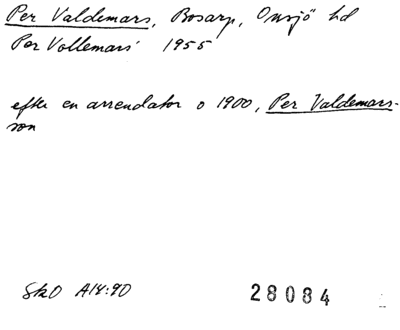 Per Valdemars, Bosarp, Onsjö hd
Per Vollemars 1955
efter en arrendator o 1900, Per Valdemars-
son
SkO A18:90
28084